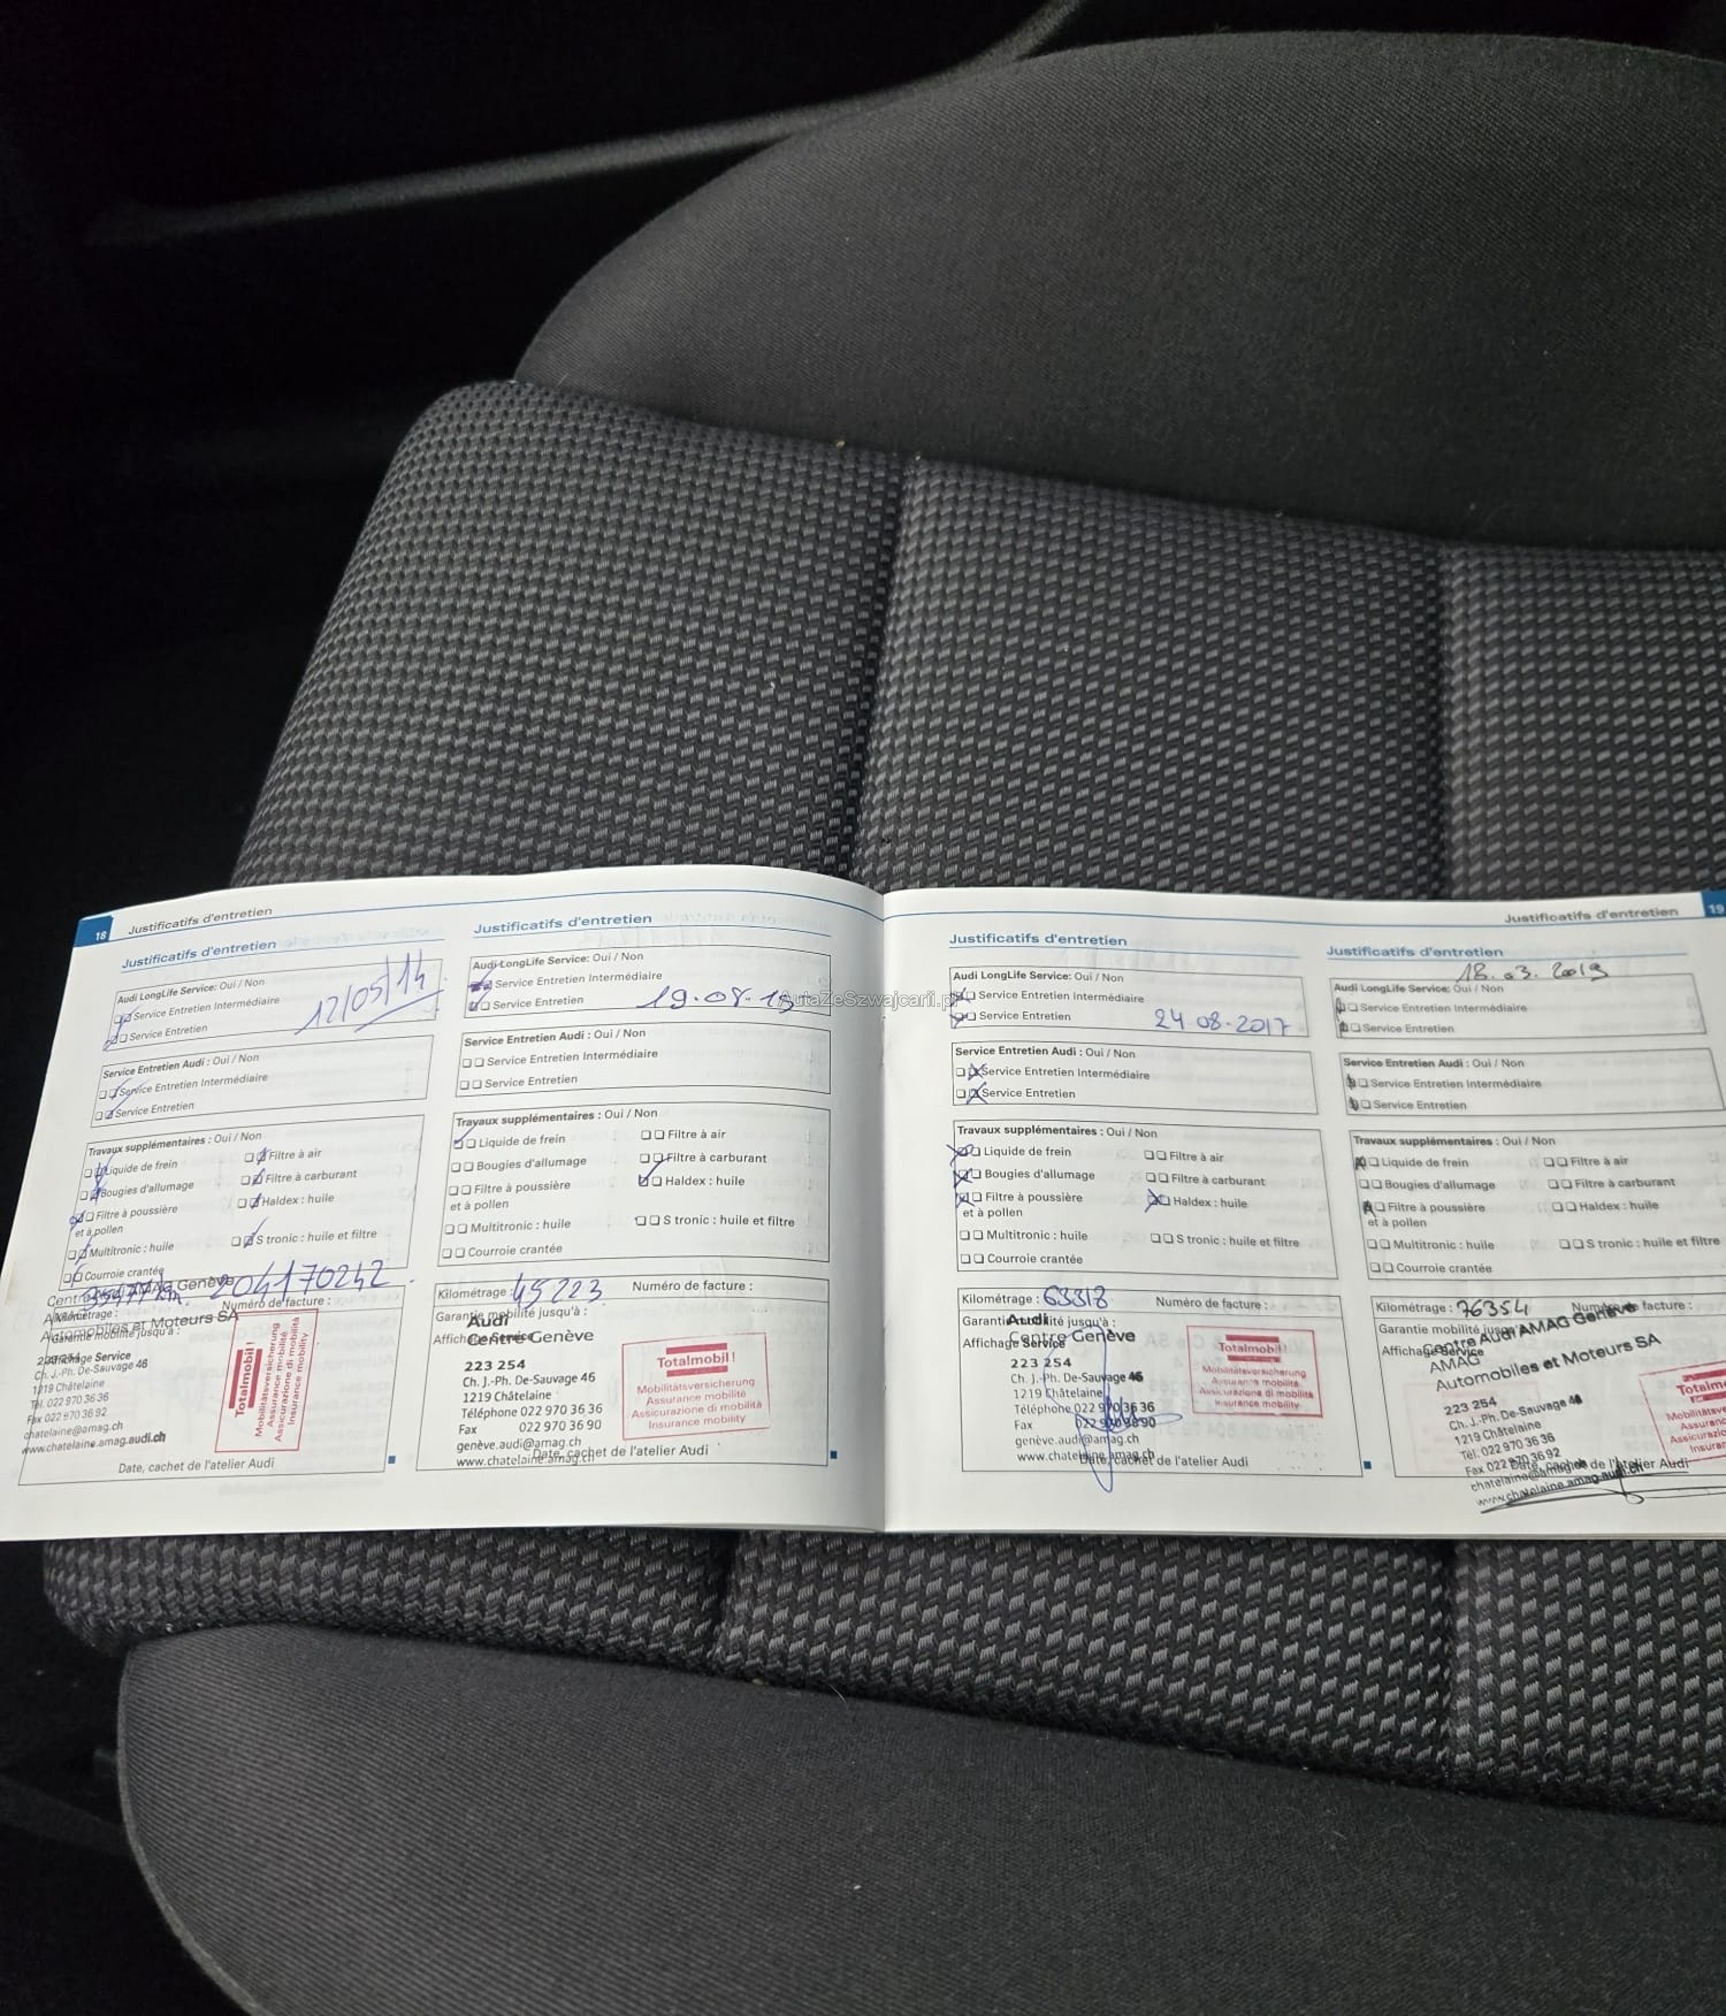 18 Justificatifs d'entretien
Justificatifs d'entretien
Audi LongLife Service: Oui / Non
Service Entretien Intermédiaire
Service Entretien
12/05/14
Service Entretien Audi : Oui / Non
Service Entretien Intermédiaire
Service Entretien
Travaux supplémentaires : Oui / Non
Liquide de frein
Filtre à air
Bougies d'allumage
Filtre à carburant
Filtre à poussière
et à pollen
Haldex : huile
Multitronic : huile
S tronic : huile et filtre
Courroie crantée
204170242
Kilométrage :
Numéro de facture :
Automobiles et Moteurs SA
Garantie mobilité jusqu'à :
Affichage Service
Ch. J.-Ph. De-Sauvage 46
1219 Châtelaine
Tél. 022 970 36 36
Fax 022 970 36 92
chatelaine@amag.ch
www.chatelaine.amag.audi.ch
Totalmobil!
Mobilitätsversicherung
Assurance mobilité
Assicurazione di mobilità
Insurance mobility
Date, cachet de l'atelier Audi
Justificatifs d'entretien
Audi LongLife Service: Oui / Non
Service Entretien Intermédiaire
Service Entretien
19.08.15
Service Entretien Audi : Oui / Non
Service Entretien Intermédiaire
Service Entretien
Travaux supplémentaires : Oui / Non
Liquide de frein
Filtre à air
Bougies d'allumage
Filtre à carburant
Filtre à poussière
et à pollen
Haldex : huile
Multitronic : huile
S tronic : huile et filtre
Courroie crantée
Kilométrage : 45223 Numéro de facture :
Garantie mobilité jusqu'à :
Affichage Service
Audi
Centre Genève
223 254
Ch. J.-Ph. De-Sauvage 46
1219 Châtelaine
Téléphone 022 970 36 36
Fax 022 970 36 90
genève.audi@amag.ch
www.chatelaine.amag.ch
Totalmobil!
Mobilitätsversicherung
Assurance mobilité
Assicurazione di mobilità
Insurance mobility
Date, cachet de l'atelier Audi
AutaZeSzwajcarii.pl
Justificatifs d'entretien 19
Justificatifs d'entretien
Audi LongLife Service: Oui / Non
Service Entretien Intermédiaire
Service Entretien
24 08.2017
Service Entretien Audi : Oui / Non
Service Entretien Intermédiaire
Service Entretien
Travaux supplémentaires : Oui / Non
Liquide de frein
Filtre à air
Bougies d'allumage
Filtre à carburant
Filtre à poussière
et à pollen
Haldex : huile
Multitronic : huile
S tronic : huile et filtre
Courroie crantée
Kilométrage : 63318 Numéro de facture :
Garantie mobilité jusqu'à :
Affichage Service
Audi
Centre Genève
223 254
Ch. J.-Ph. De-Sauvage 46
1219 Châtelaine
Téléphone 022 970 36 36
Fax
genève.audi@amag.ch
www.chatelaine.amag.ch
Totalmobil!
Mobilitätsversicherung
Assurance mobilité
Assicurazione di mobilità
Insurance mobility
Date, cachet de l'atelier Audi
Justificatifs d'entretien
18.03.2019
Audi LongLife Service: Oui / Non
Service Entretien Intermédiaire
Service Entretien
Service Entretien Audi : Oui / Non
Service Entretien Intermédiaire
Service Entretien
Travaux supplémentaires : Oui / Non
Liquide de frein
Filtre à air
Bougies d'allumage
Filtre à carburant
Filtre à poussière
et à pollen
Haldex : huile
Multitronic : huile
S tronic : huile et filtre
Courroie crantée
Kilométrage : 76354 Numéro de facture :
Garantie mobilité jusqu'à :
Affichage Service
Centre Audi AMAG Genève
AMAG
Automobiles et Moteurs SA
223 254
Ch. J.-Ph. De-Sauvage
1219 Châtelaine
Tél. 022 970 36 36
Fax 022 970 36 92
chatelaine@amag.ch
www.chatelaine.amag.audi.ch
Date, cachet de l'atelier Audi